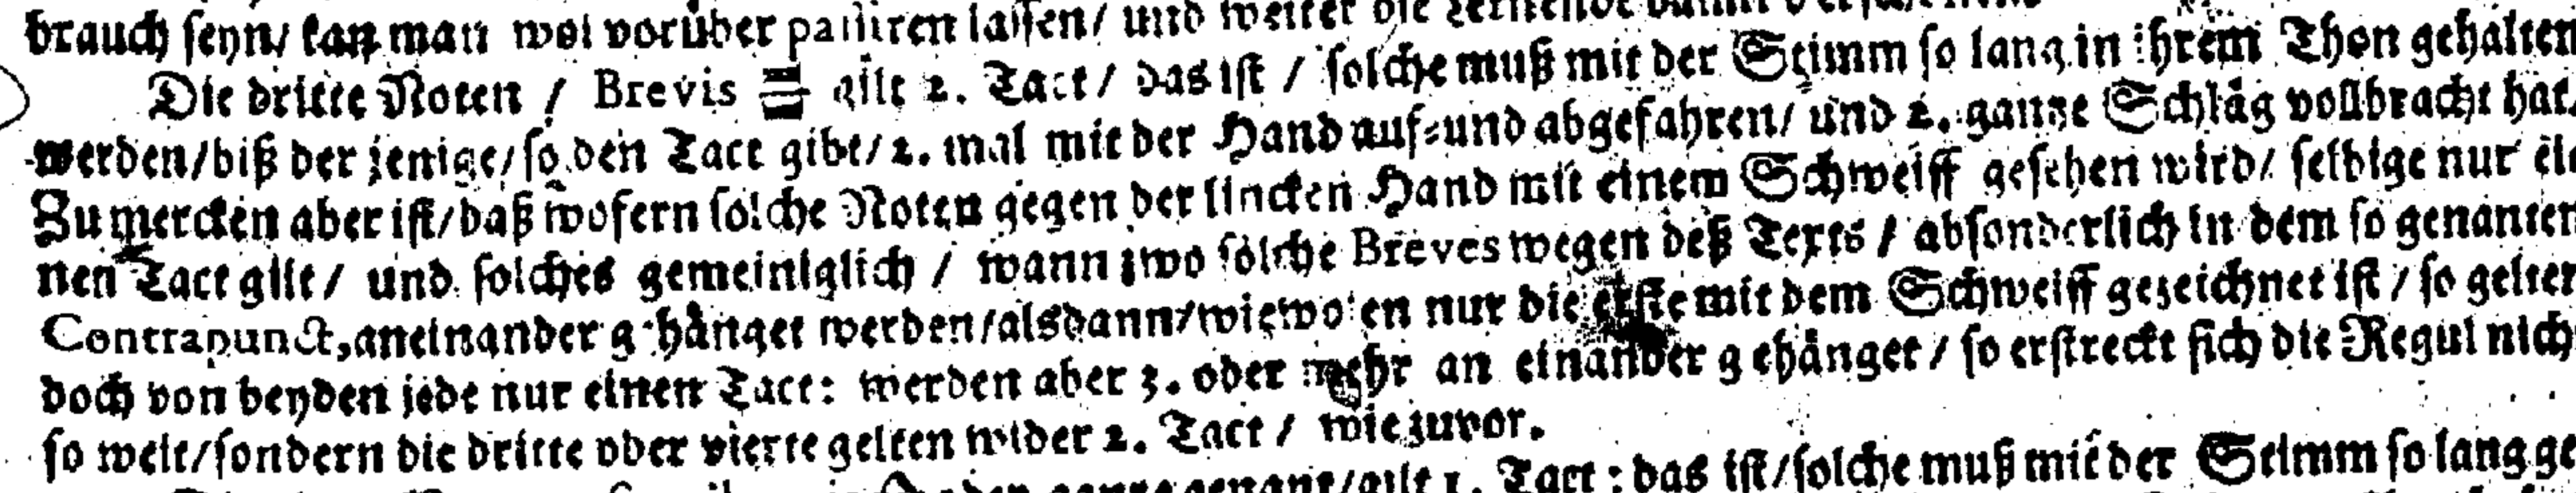 brauch seyn/ kan man wol vorüber passiren lassen/ und weiter die
Die dritte Noten / Brevis gilt 2. Tact / das ist / solche muß mit der Stimm so lang in ihrem Thon gehalten
werden/biß der jenige/so den Tact gibt/2. mal mit der Hand auf-und abgefahren/ und 2. gantze Schläg vollbracht hat.
Zu mercken aber ist/daß wofern solche Noten gegen der lincken Hand mit einem Schweiff gesehen wird/ selbige nur ei
nen Tact gilt/ und solches gemeiniglich / wann zwo solche Breves wegen deß Texts / absonderlich in dem so genanten
Contrapunct,aneinander gehänget werden/alsdann/wiewolen nur die erste mit dem Schweiff gezeichnet ist / so gelten
doch von beyden jede nur einen Tact: werden aber 3. oder mehr an einander gehänget / so erstreckt sich die Regul nich
so weit/sondern die dritte oder vierte gelten wider 2. Tact / wie zuvor.
genant/gilt 1. Tact : das ist/solche muß mit der Stimm so lang ge